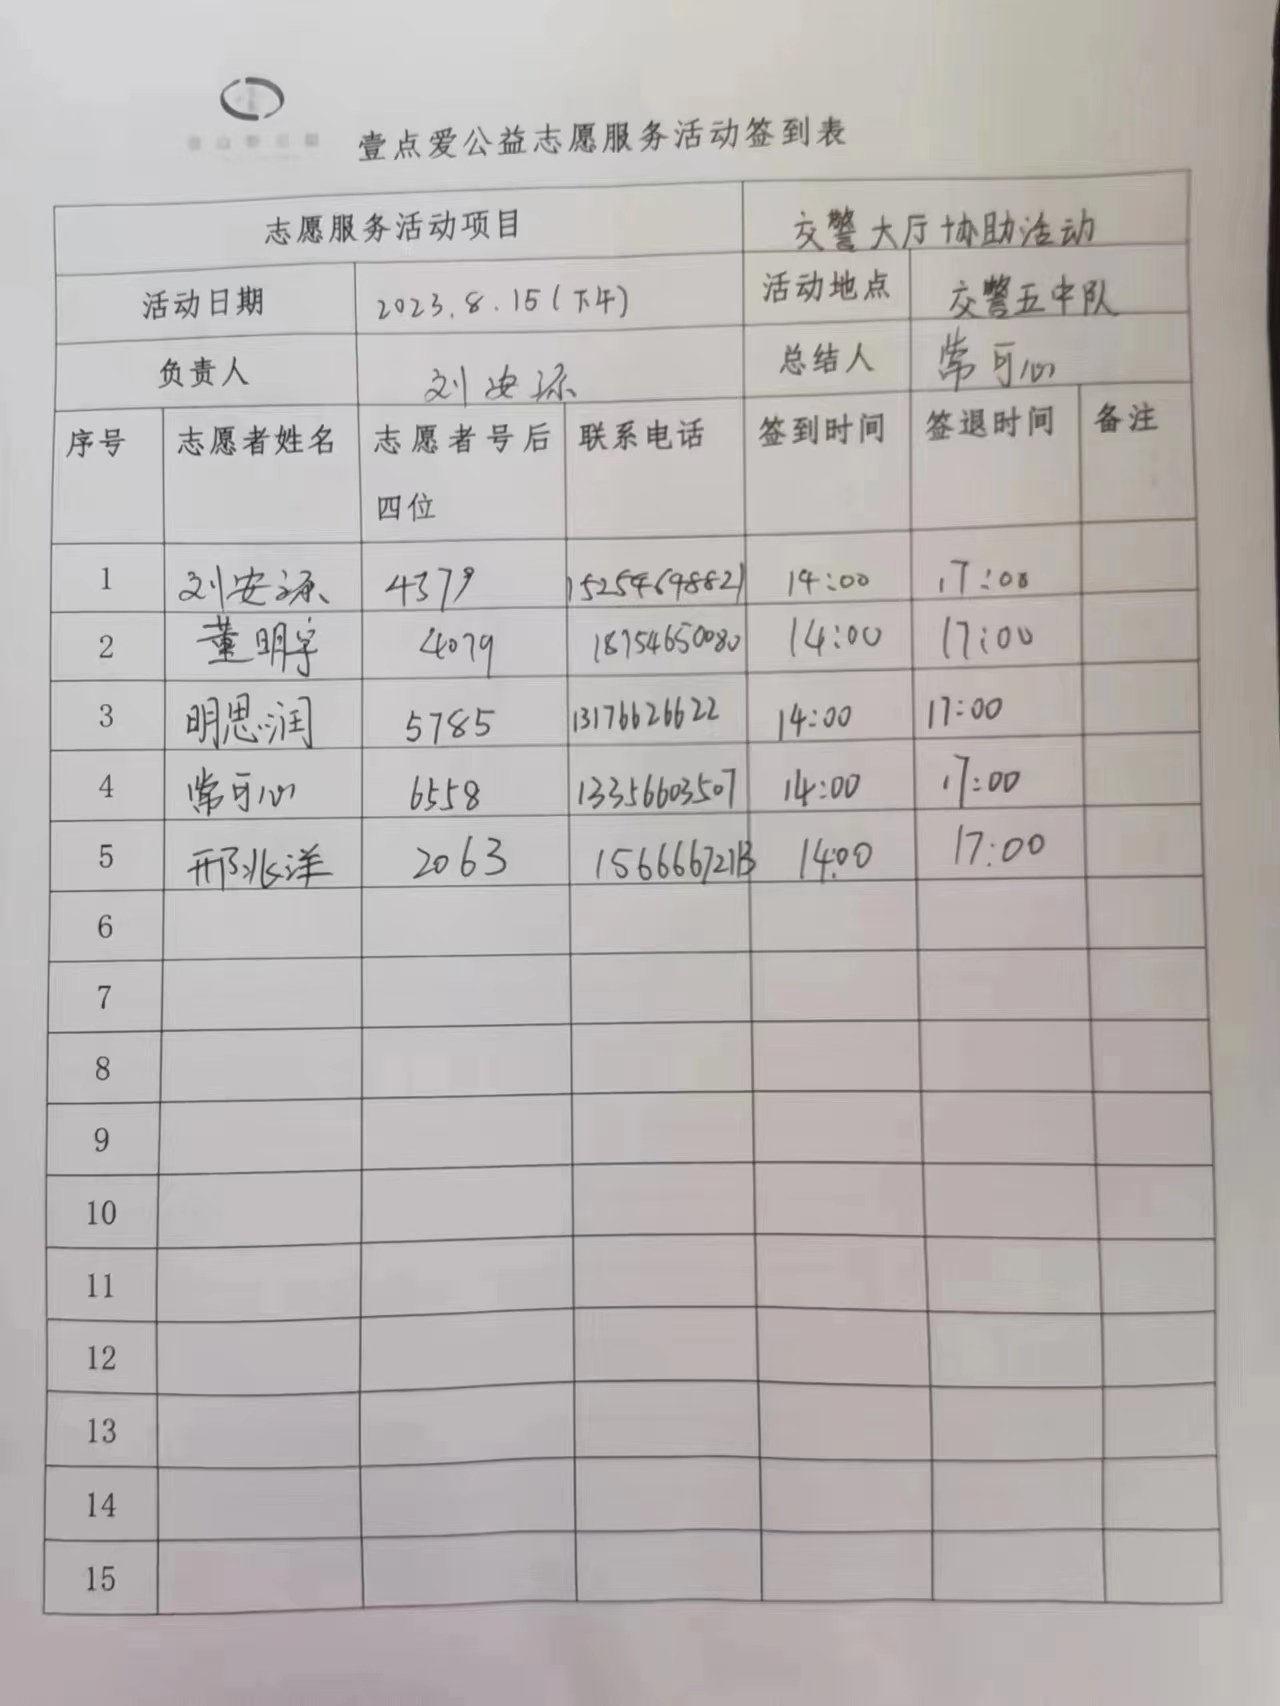 壹点爱公益志愿服务活动签到表
志愿服务活动项目 交警大厅协助活动
活动日期 2023.8.15(下午) 活动地点 交警五中队
负责人 刘安源 总结人 常可心
序号 志愿者姓名 志愿者号后四位 联系电话 签到时间 签退时间 备注
1 刘安源 4379 15254698821 14:00 17:00
2 董明宇 4079 18754650080 14:00 17:00
3 明思润 5785 13176626622 14:00 17:00
4 常可心 6558 13356603507 14:00 17:00
5 邢兆洋 2063 14:00 17:00
6
7
8
9
10
11
12
13
14
15